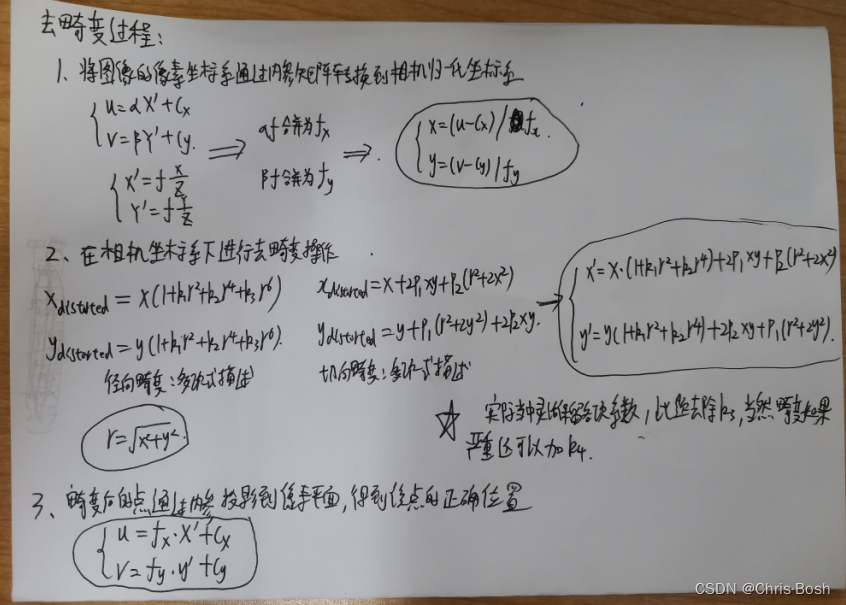 去畸变过程:
1、将图像的像素坐标系通过内参矩阵转换到相机归一化坐标系
u=αX'+Cx
v=βY'+Cy.
X'=f X/Z
Y'=f Y/Z
αf合并为fx
βf合并为fy
x=(u-Cx)/fx
y=(v-Cy)/fy
2、在相机坐标系下进行去畸变操作
Xdistorted=X(1+k₁r²+k₂r⁴+k₃r⁶)
ydistorted=y(1+k₁r²+k₂r⁴+k₃r⁶).
径向畸变:多项式描述
r=√x²+y².
xdistorted=x+2P₁xy+P₂(r²+2x²)
ydistorted=y+P₁(r²+2y²)+2P₂xy.
切向畸变:多项式描述
x'=x·(1+k₁r²+k₂r⁴)+2P₁xy+P₂(r²+2x²)
y'=y(1+k₁r²+k₂r⁴)+2P₂xy+P₁(r²+2y²).
实际当中灵活保留各次系数,比如去除k₃,当然畸变如果
严重还可以加k₄.
3、畸变后的点通过内参投影到像素平面,得到该点的正确位置
u=fx·x'+Cx
v=fy·y'+Cy
CSDN @Chris·Bosh